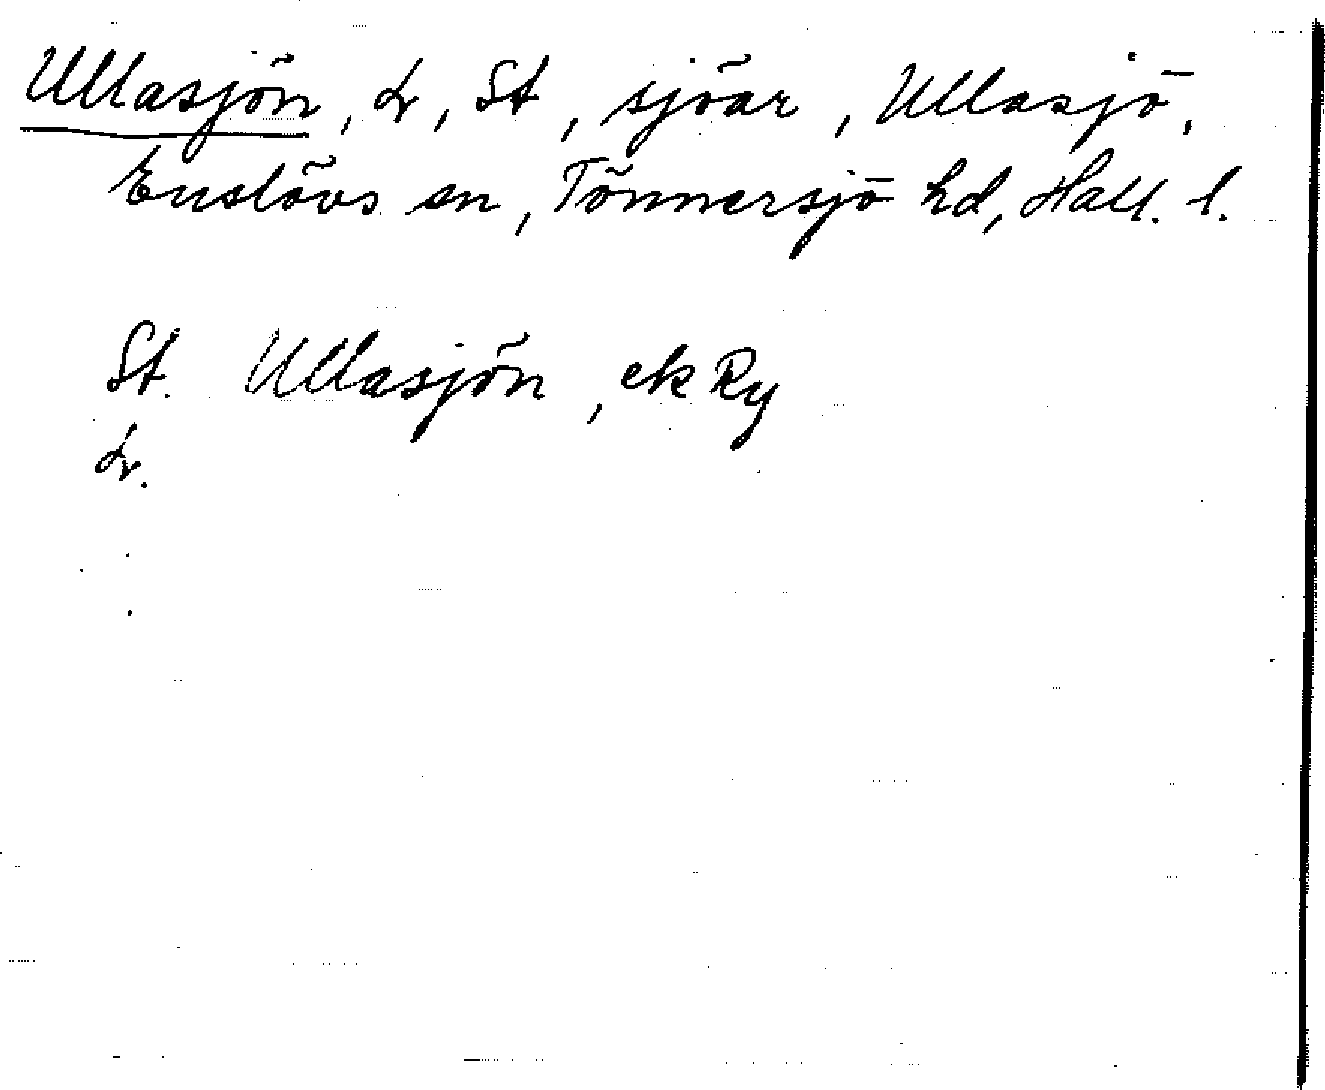 Ullasjön, L, St, sjöar, Ullasjö,
Enslövs sn, Tönnersjö hd, Hall. l.
St. Ullasjön, ek Ry
L.